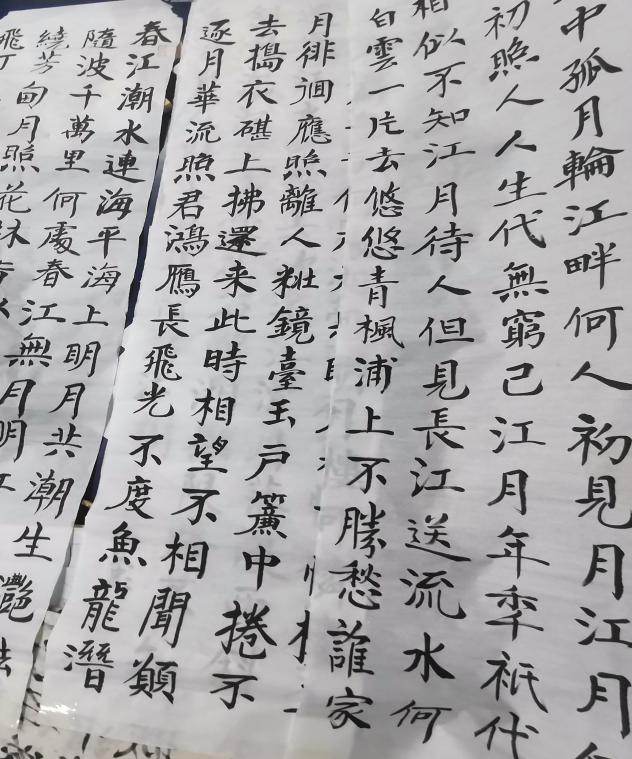 中孤月輪江畔何人初見月江月
初照人人生代無窮已江月年秊祇代
相似不知江月待人但見長江送流水何
白雲一片去悠悠青楓浦上不勝愁誰家
月徘徊應照離人粧鏡臺玉戶簾中捲不
去搗衣碪上拂還来此時相望不相聞願
逐月華流照君鴻鴈長飛光不度魚龍潛
春江潮水連海平海上明月共潮生灩
隨波千萬里何處春江無月明江
繞芳甸月照花林